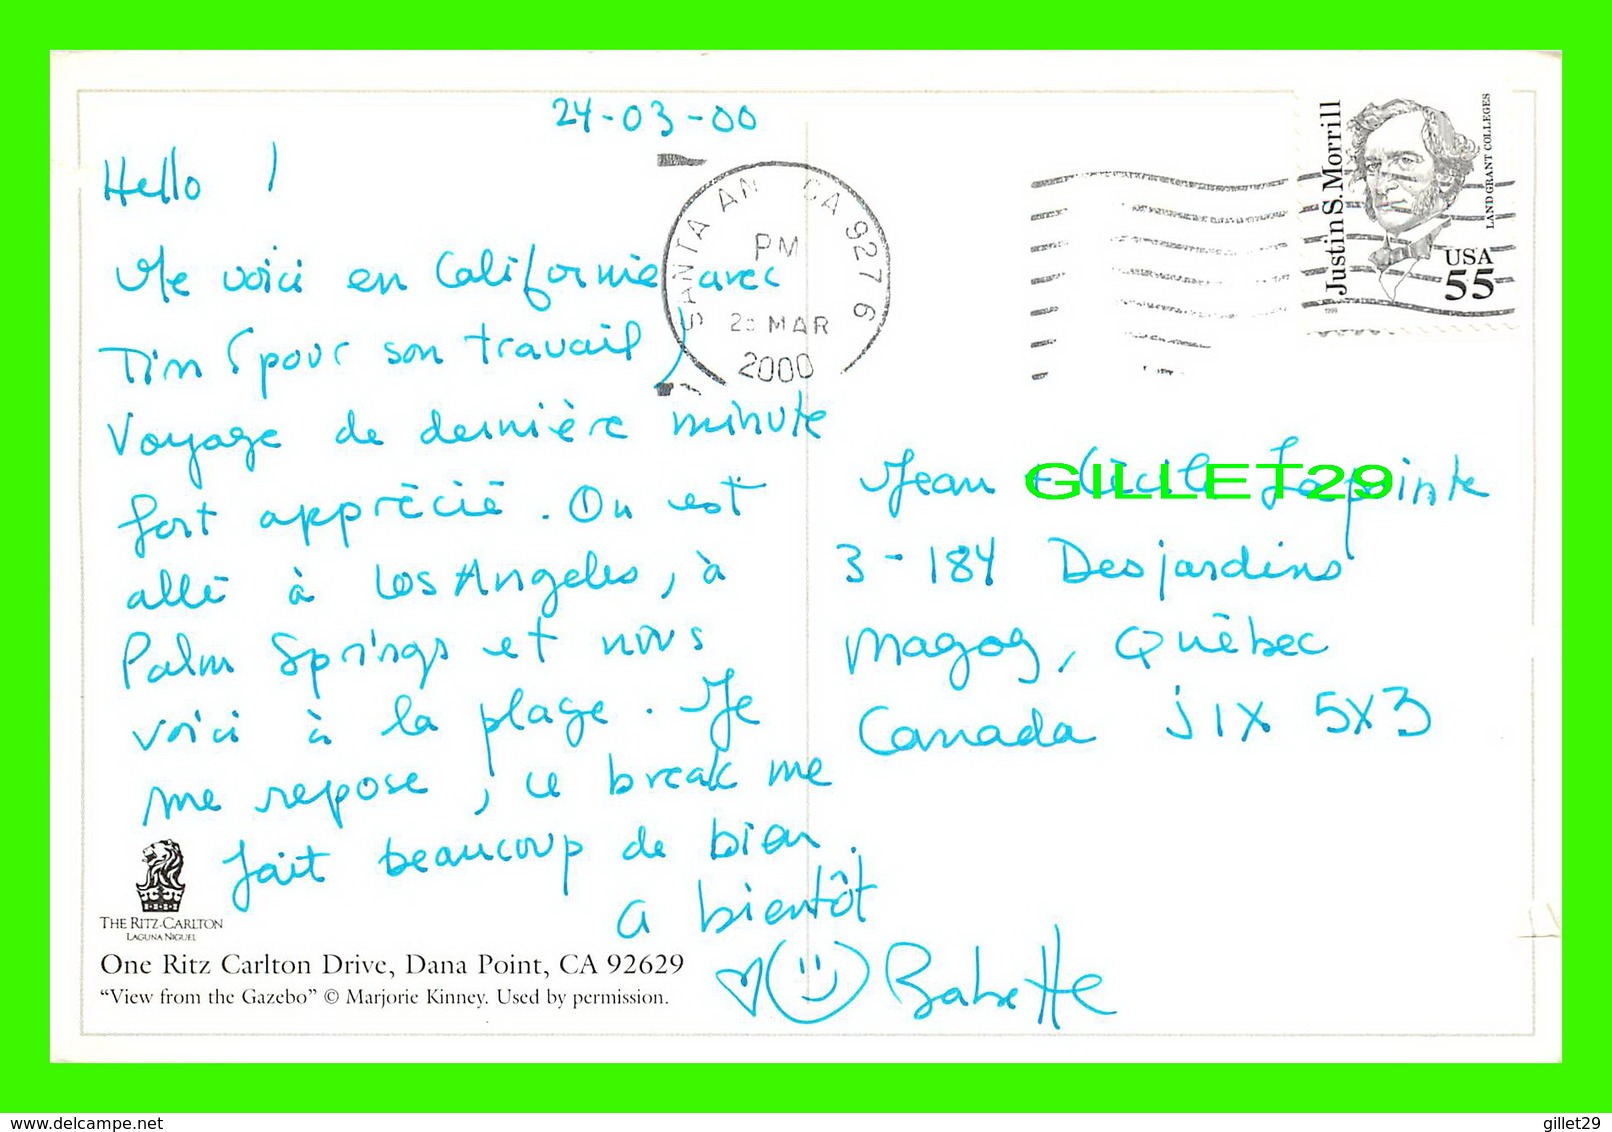 24-03-00
Hello !
Me voici en Californie avec
Tim (pour son travail)
Voyage de dernière minute
fort apprécié. On est
allé à Los Angeles, à
Palm Springs et nous
voici à la plage. Je
me repose, ce break me
fait beaucoup de bien.
A bientôt
Babette
SANTA AN CA 92776
PM
MAR
2000
Justin S. Morrill
LAND GRANT COLLEGES
USA
55
1999
Jean + Cécile Lapointe
GILLET29
3-184 Desjardins
Magog, Québec
Canada J1X 5X3
THE RITZ-CARLTON
LAGUNA NIGUEL
One Ritz Carlton Drive, Dana Point, CA 92629
“View from the Gazebo” © Marjorie Kinney. Used by permission.
www.delcampe.net
gillet29